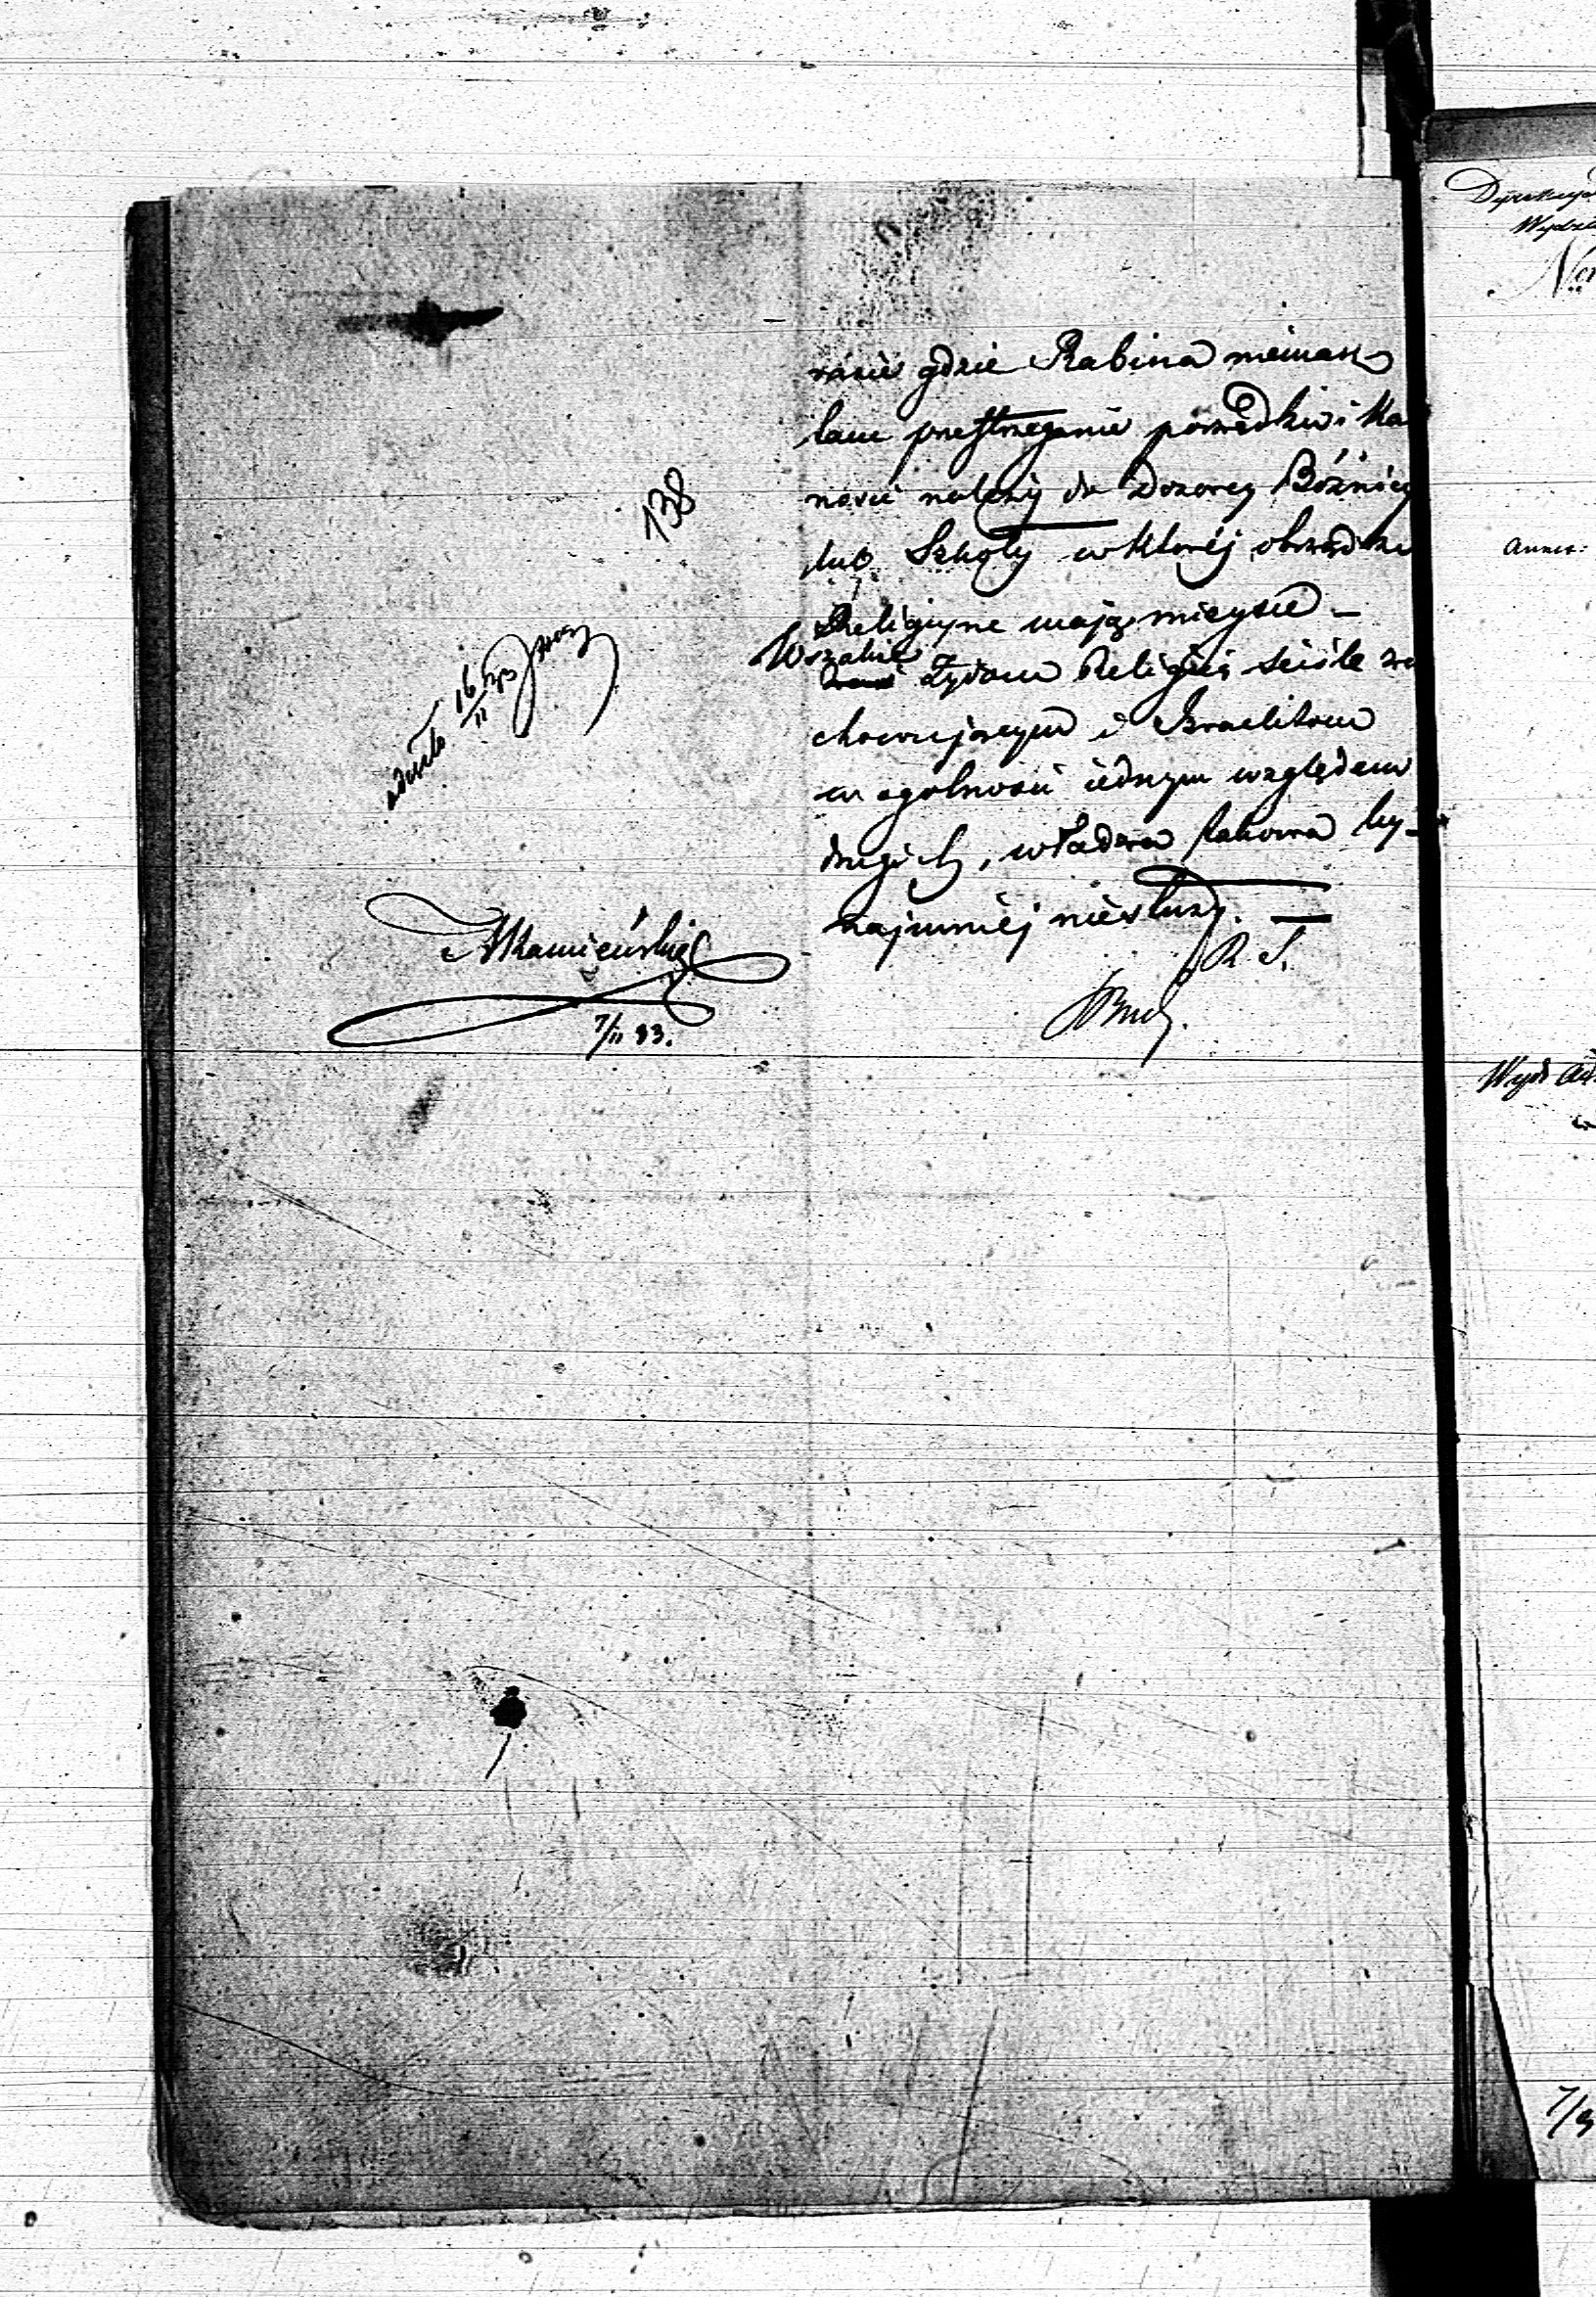 razie gdzie Rabina niemasz
lam przestrzeganie porządku i ka
ności należy do Dozorcy Bóżnicy
lub Szkoły w któréj obrządki
Religijne mają mieysce _
Wszakże Żydom Religią ściśle za
chowującym i Izraelitom
w ogolności iednym względem
drugich, władza takowa by-
najmniéj niesłuży. _
R. S.
138
16/11
AKamieński
7/11 33.
Dyrekcya
Wydzia
No
Annex:
Wydz Ad